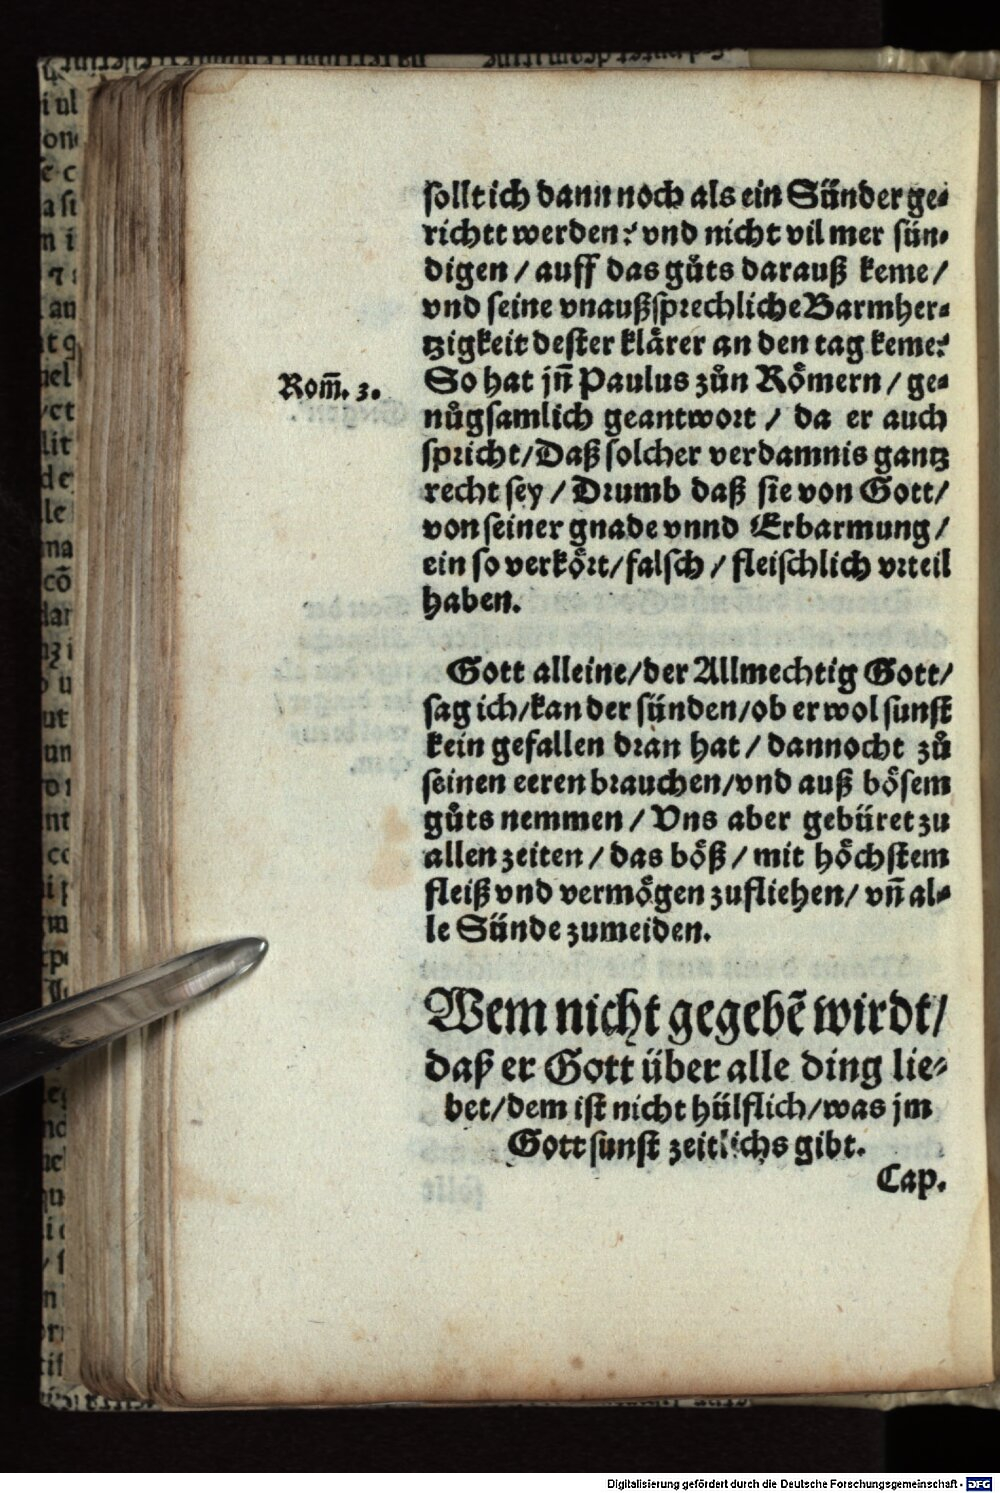 sollt ich dann noch als ein Sünder ge-
richtt werden? vnd nicht vil mer sün-
digen / auff das gůts darauß keme /
vnd seine vnaußsprechliche Barmher-
tzigkeit dester klärer an den tag keme?
Rom̃. 3.
So hat jn̄ Paulus zůn Römern / ge-
nůgsamlich geantwort / da er auch
spricht / Daß solcher verdamnis gantz
recht sey / Drumb daß sie von Gott /
von seiner gnade vnnd Erbarmung /
ein so verkört / falsch / fleischlich vrteil
haben.
Gott alleine / der Allmechtig Gott /
sag ich / kan der sünden / ob er wol sunst
kein gefallen dran hat / dannocht zů
seinen eeren brauchen / vnd auß bösem
gůts nemmen / Vns aber gebüret zu
allen zeiten / das böß / mit höchstem
fleiß vnd vermögen zufliehen / vn̄ al-
le Sünde zumeiden.
Wem nicht gegebē wirdt /
daß er Gott über alle ding lie-
bet / dem ist nicht hülflich / was jm
Gott sunst zeitlichs gibt.
Cap.
Digitalisierung gefördert durch die Deutsche Forschungsgemeinschaft - DFG